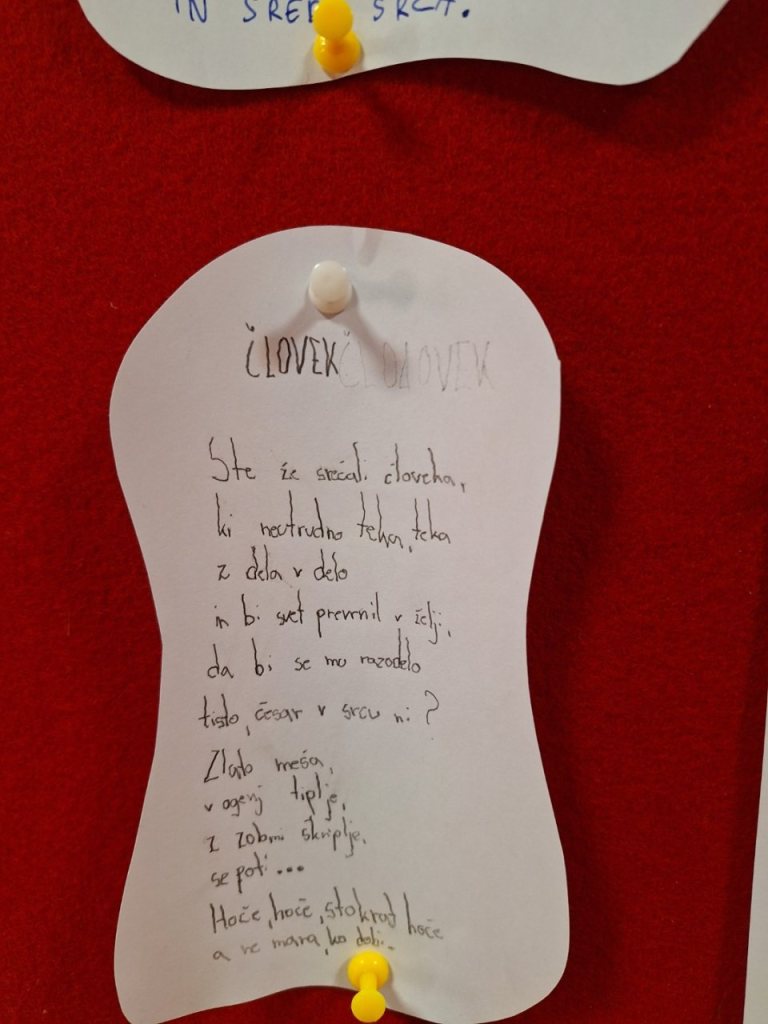 IN SREDI SRCA.
ČLOVEK
Ste že srečali človeka,
ki neutrudno teka, teka
z dela v delo
in bi svet prevrnil v želji,
da bi se mu razodelo
tisto, česar v srcu ni?
Zlato meša,
v ogenj tiplje,
z zobmi škriplje,
se poti...
Hoče, hoče, stokrat hoče
a ne mara, ko dobi.